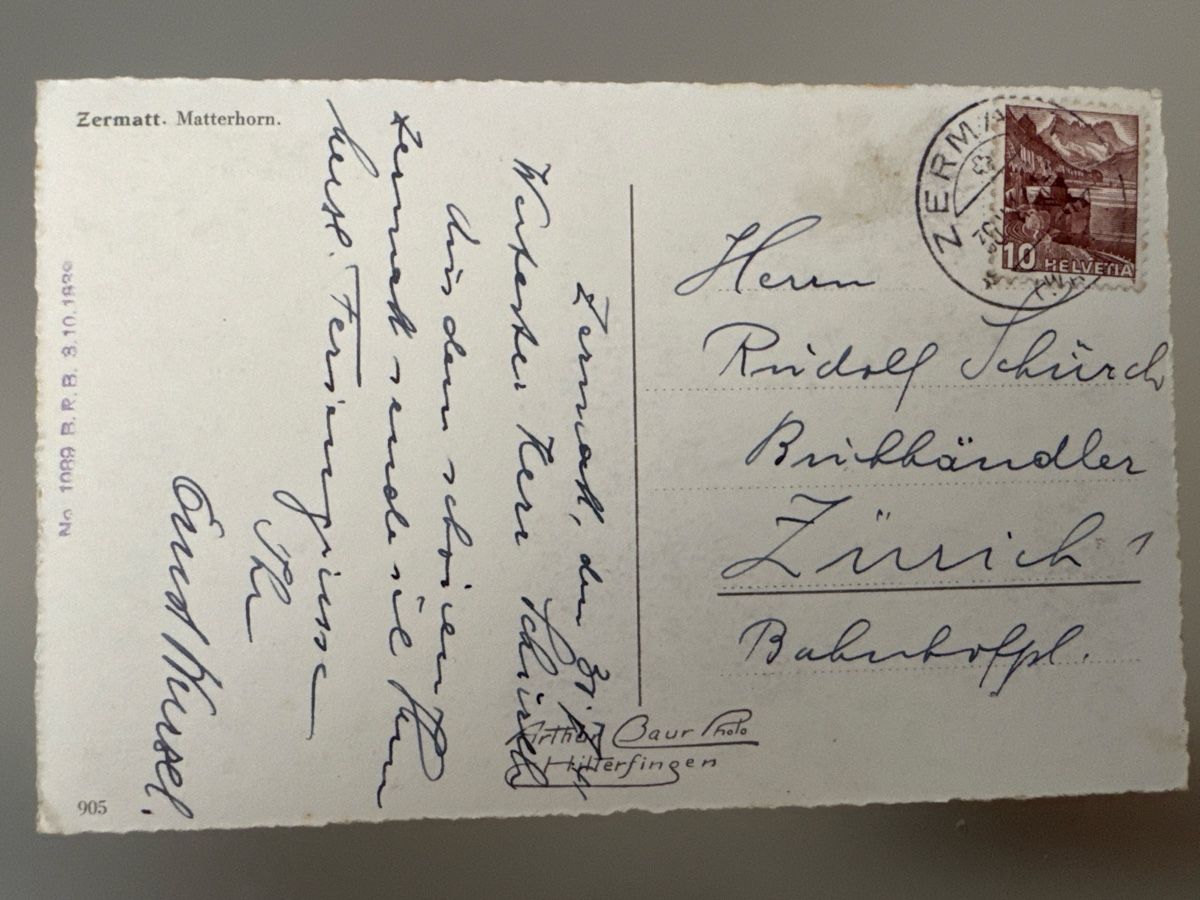 Zermatt. Matterhorn.
No. 1089 B. R. B. 3.10.1939
Zermatt, den 31.
Wertester Herr Schürch
Aus dem schönen
Zermatt sende ich Ihnen
herzl. Feriengrüsse
Ihr
Ernst
905
Arthur Baur Photo
Hilterfingen
ZERMATT
10 HELVETIA
Herrn
Rudolf Schürch
Buchhändler
Zürich 1
Bahnhofpl.